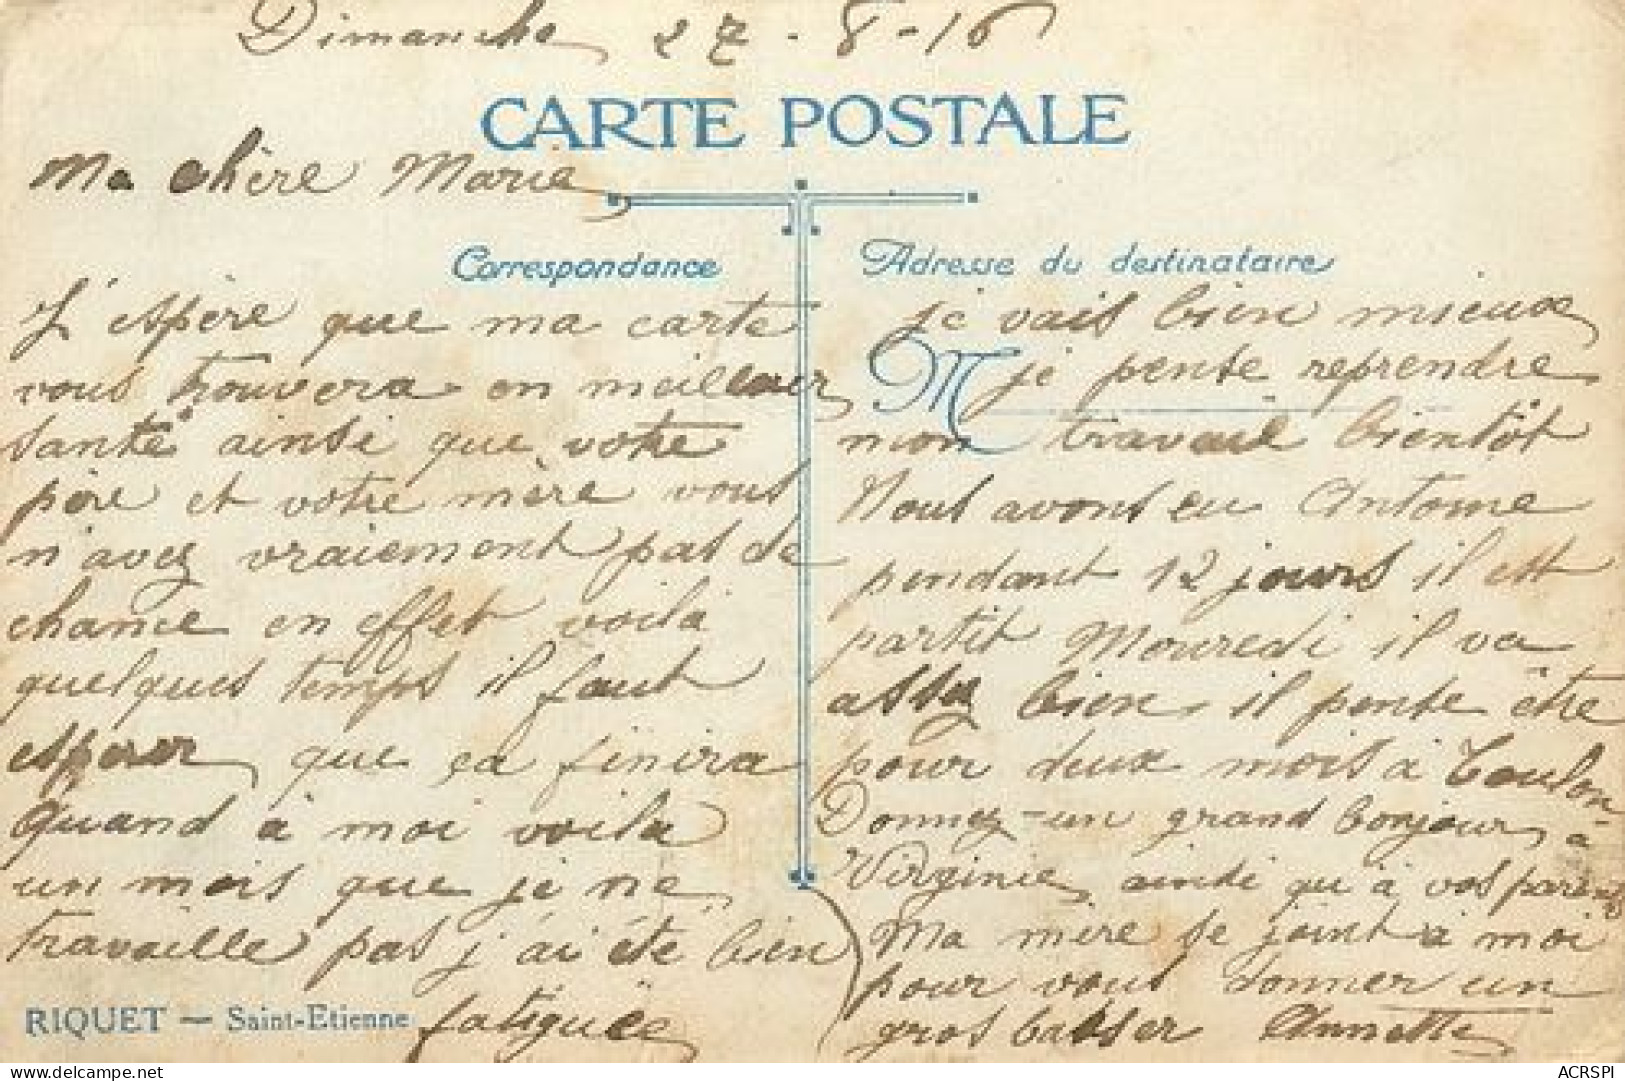 Dimanche 27-8-16
CARTE POSTALE
Ma chère Marie,
Correspondance
J'espère que ma carte
vous trouvera en meilleur
santé ainsi que votre
père et votre mère vous
n'avez vraiment pas de
chance en effet voilà
quelques temps il faut
esperer que ça finira
Quand à moi voila
un mois que je ne
travaille pas j'ai été bien
fatiguée
RIQUET — Saint-Etienne
Adresse du destinataire
je vais bien mieux
M je pense reprendre
mon travail bientôt
Nous avons eu Antoine
pendant 12 jours il est
partit Mouredi il va
assez bien, il pense être
pour deux mois à Toulon
Donnez-un grand bonjour à
Virginie ainsi qu'à vos parents
Ma mère se joint à moi
pour vous donner un
gros basser Annette
ACRSPI